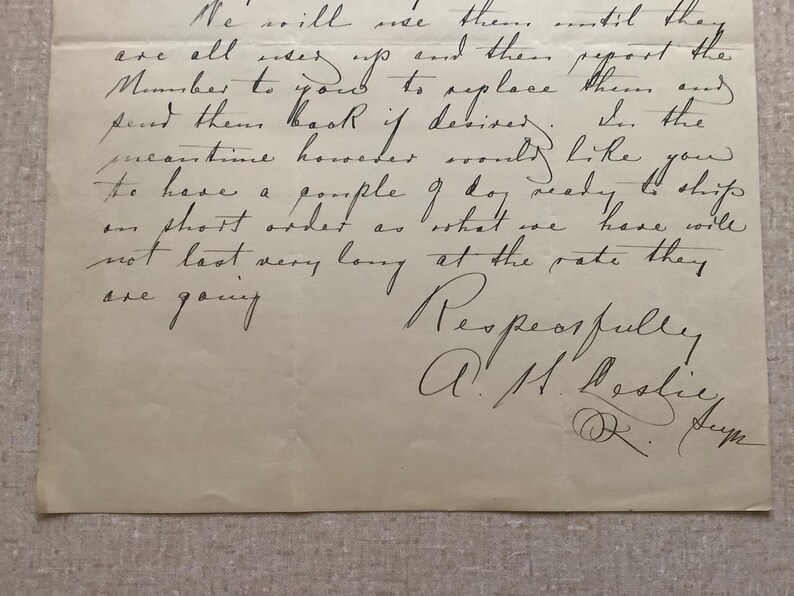 We will use them until they
are all used up and then report the
Number to you to replace them and
send them back if desired. In the
meantime however would like you
to have a couple of doz ready to ship
on short order as what we have will
not last very long at the rate they
are going
Respectfully
A. H. Leslie
Supt